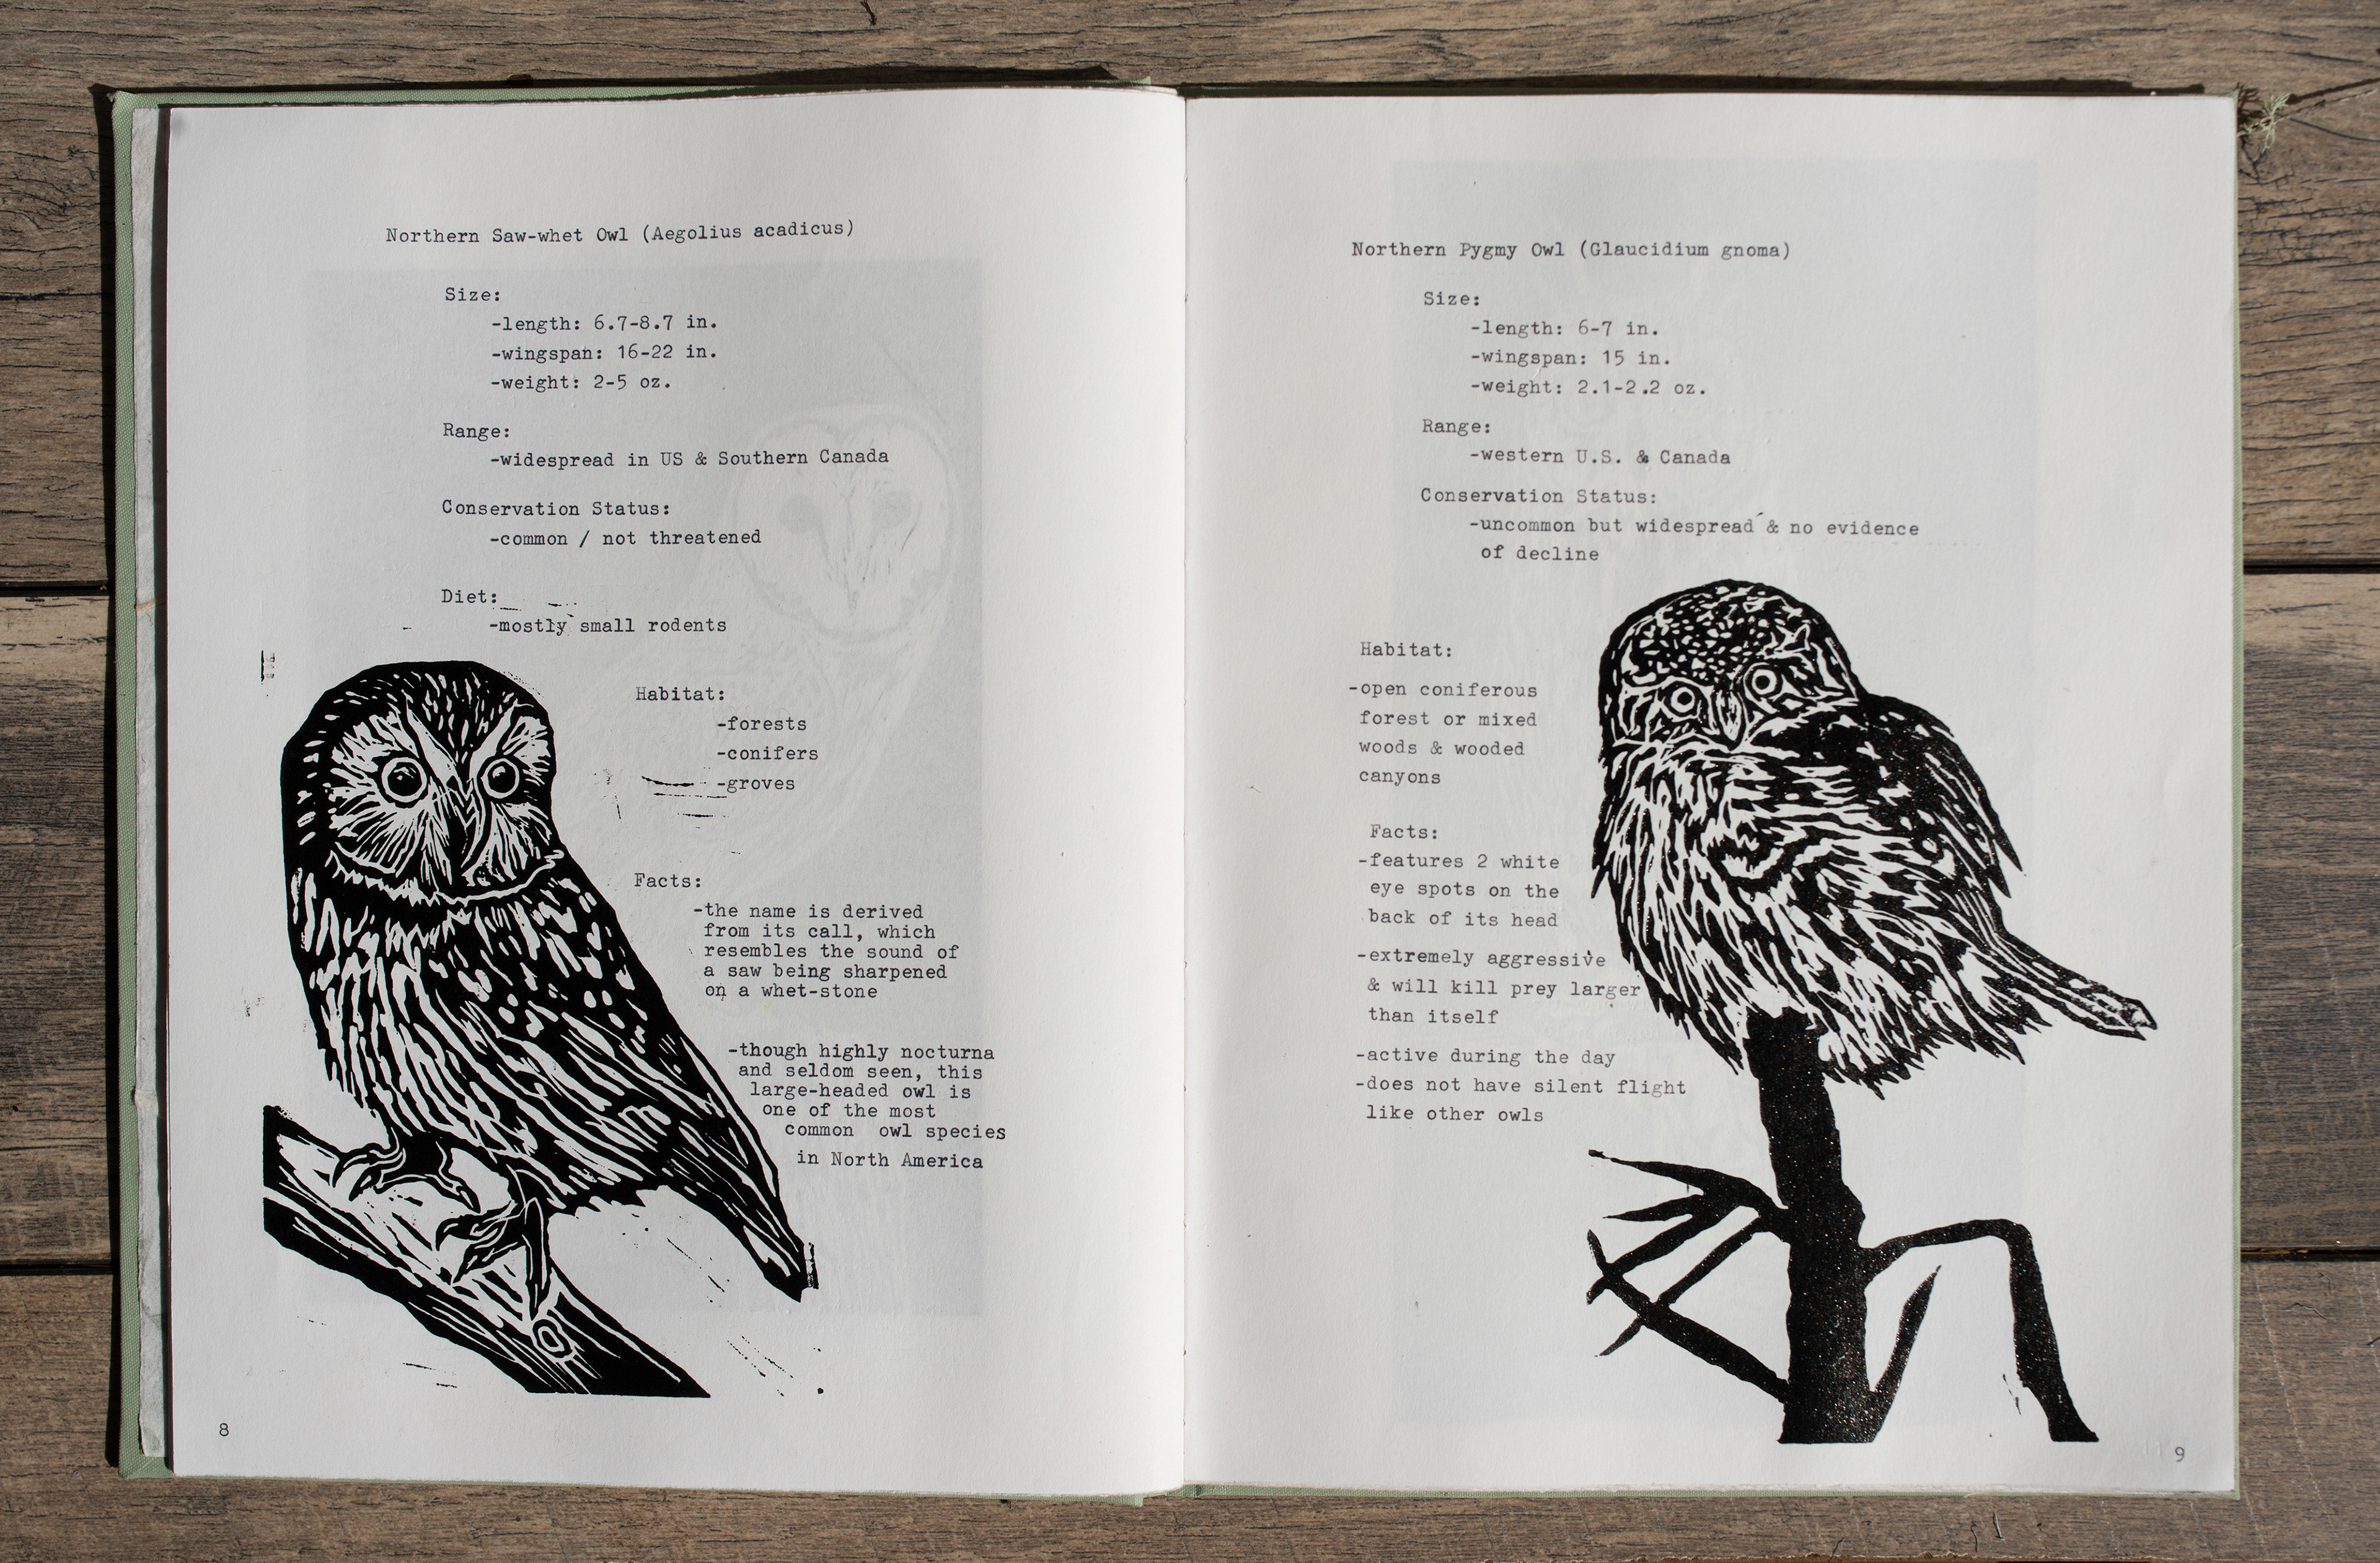 Northern Saw-whet Owl (Aegolius acadicus)
Size:
-length: 6.7-8.7 in.
-wingspan: 16-22 in.
-weight: 2-5 oz.
Range:
-widespread in US & Southern Canada
Conservation Status:
-common / not threatened
Diet:
-mostly small rodents
Habitat:
-forests
-conifers
-groves
Facts:
-the name is derived
from its call, which
resembles the sound of
a saw being sharpened
on a whet-stone
-though highly nocturna
and seldom seen, this
large-headed owl is
one of the most
common owl species
in North America
8
Northern Pygmy Owl (Glaucidium gnoma)
Size:
-length: 6-7 in.
-wingspan: 15 in.
-weight: 2.1-2.2 oz.
Range:
-western U.S. & Canada
Conservation Status:
-uncommon but widespread & no evidence
of decline
Habitat:
-open coniferous
forest or mixed
woods & wooded
canyons
Facts:
-features 2 white
eye spots on the
back of its head
-extremely aggressive
& will kill prey larger
than itself
-active during the day
-does not have silent flight
like other owls
9